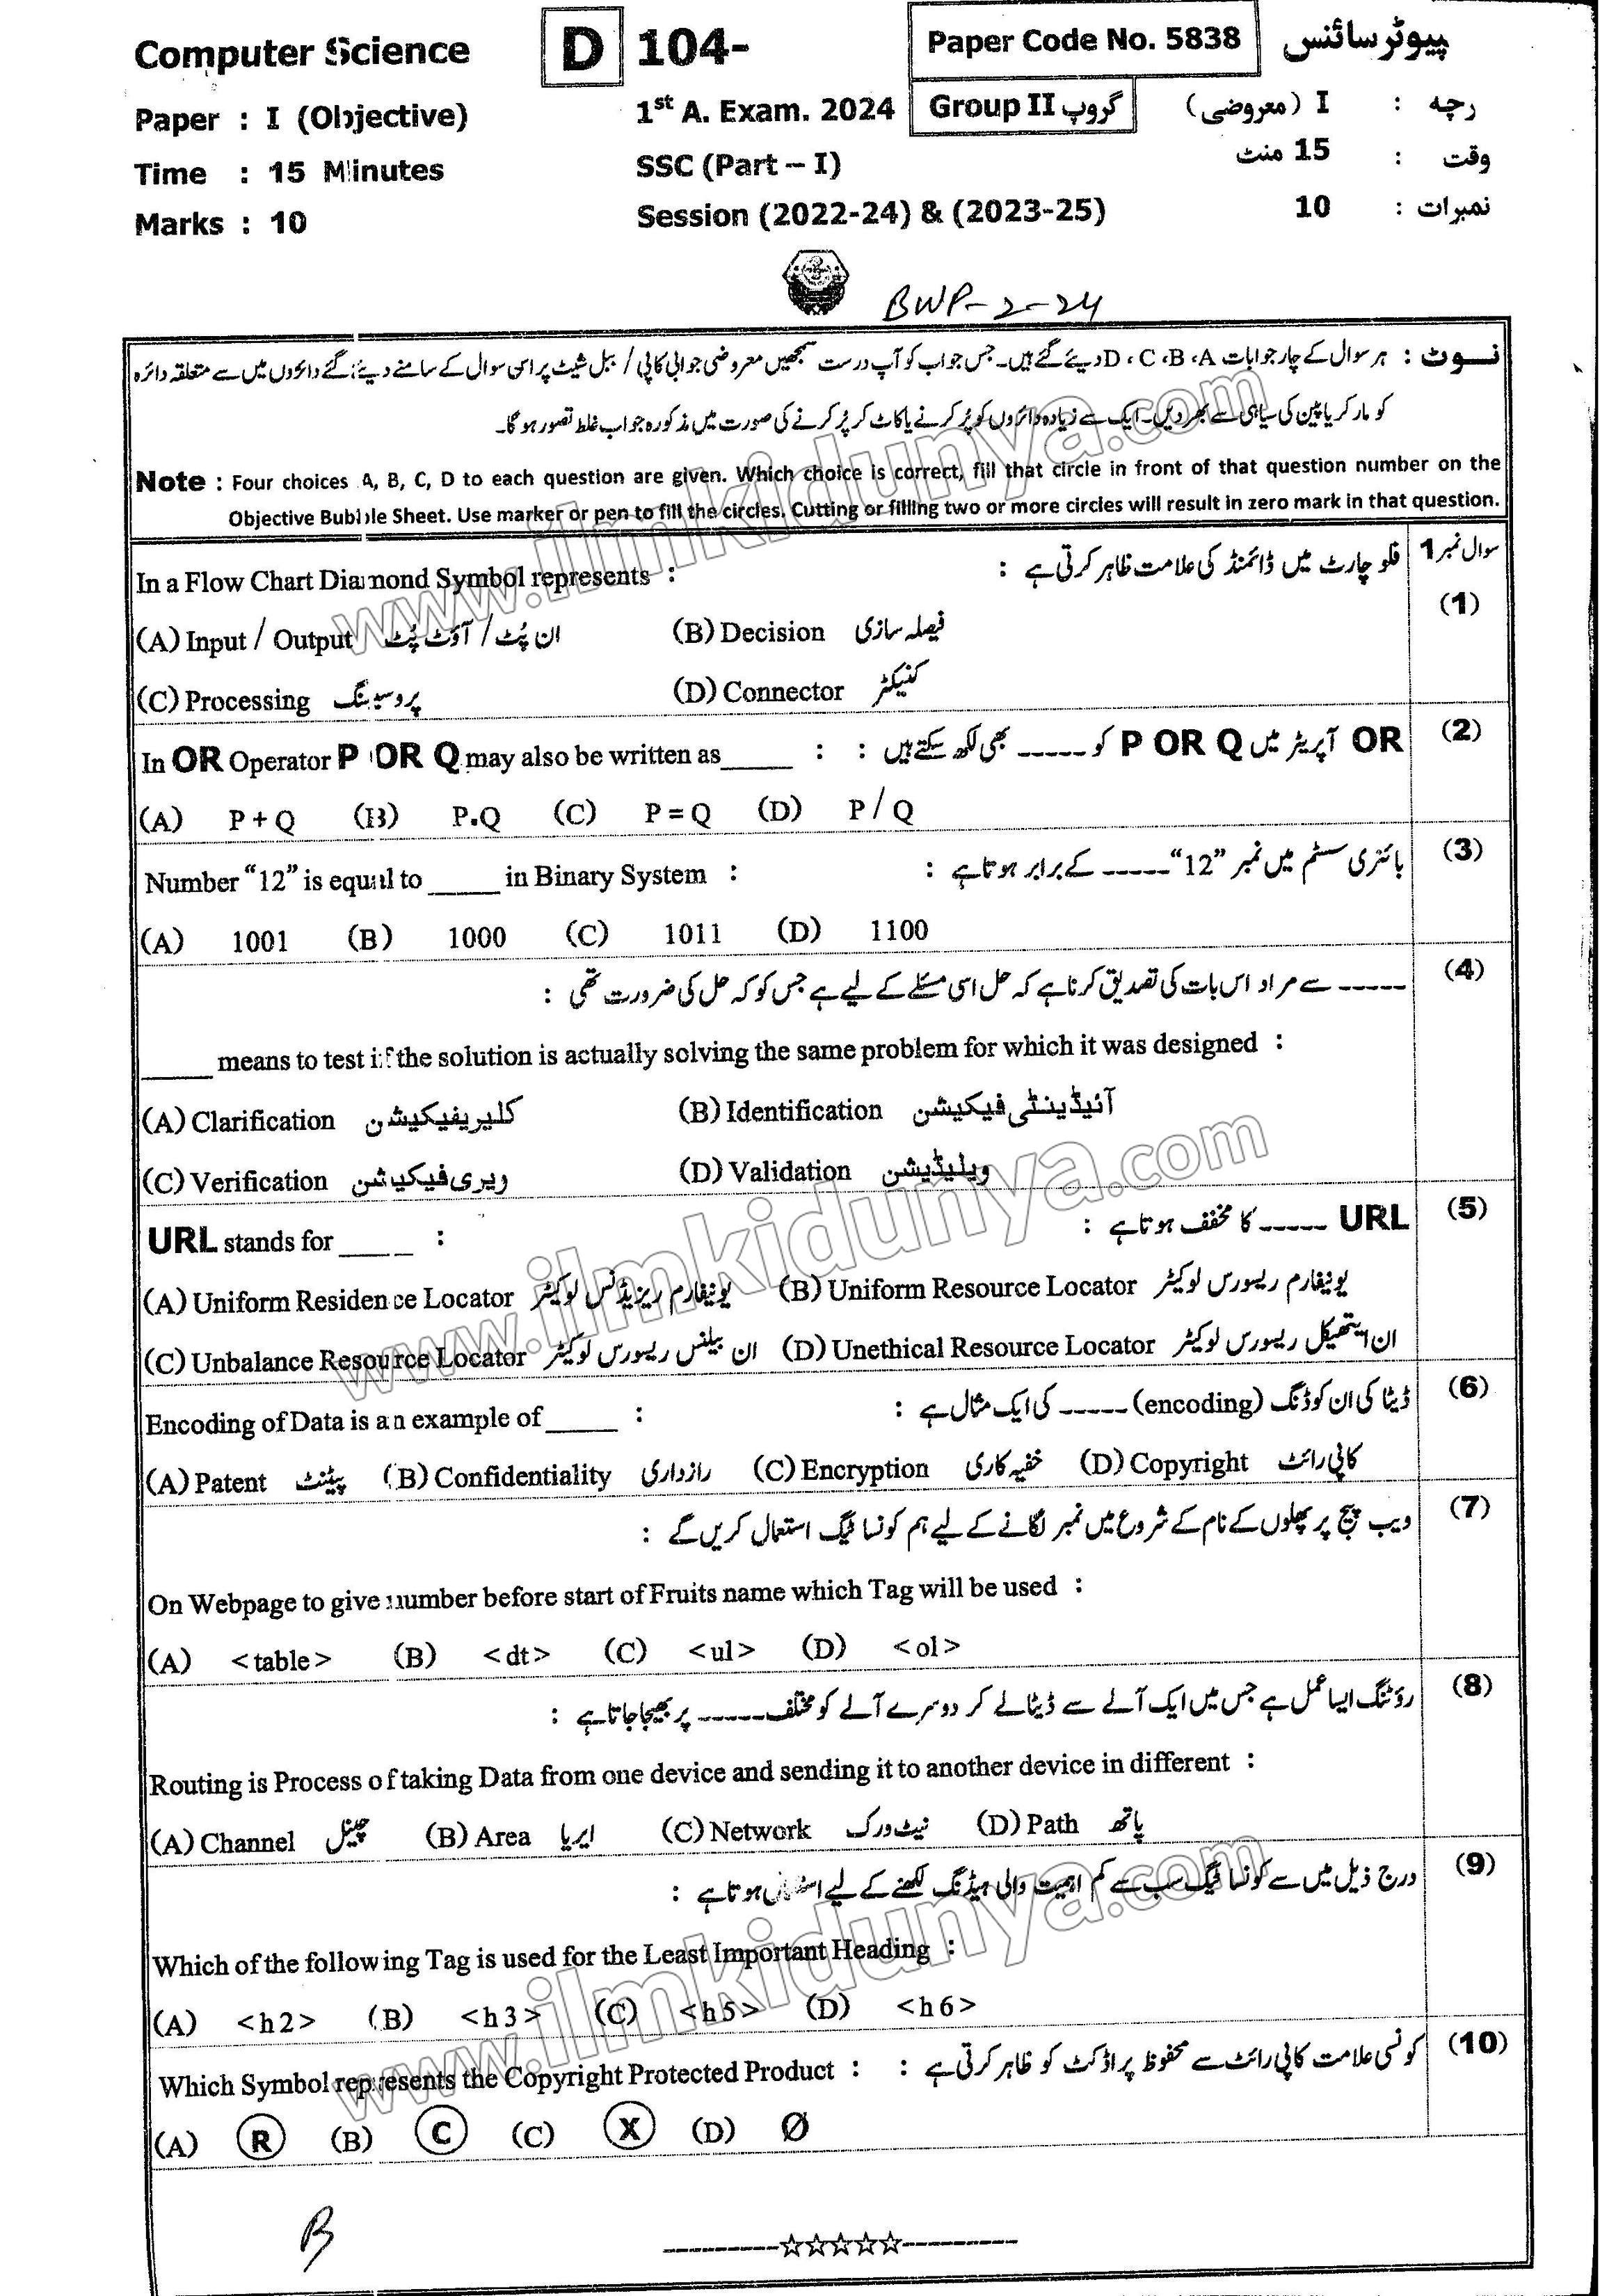 Computer Science D 104- Paper Code No. 5838 پیوٹر سائنس
Paper : I (Objective) 1st A. Exam. 2024 Group II گروپ I (معروضی) : رچہ
Time : 15 Minutes SSC (Part – I) 15 منٹ : وقت
Marks : 10 Session (2022-24) & (2023-25) 10 : نمبرات
BWP-2-24
نوٹ : ہر سوال کے چار جوابات D ، C ، B ، A دیئے گئے ہیں۔ جس جواب کو آپ درست سمجھیں معروضی جوابی کاپی / ببل شیٹ پر اس سوال کے سامنے دیئے گئے دائروں میں سے متعلقہ دائرہ
کو مارکر یا پین کی سیاہی سے بھر دیں۔ ایک سے زیادہ دائروں کو پُر کرنے یا کاٹ کر پُر کرنے کی صورت میں مذکورہ جواب غلط تصور ہو گا۔
Note : Four choices A, B, C, D to each question are given. Which choice is correct, fill that circle in front of that question number on the
Objective Bubble Sheet. Use marker or pen to fill the circles. Cutting or filling two or more circles will result in zero mark in that question.
سوال نمبر 1
In a Flow Chart Diamond Symbol represents : فلو چارٹ میں ڈائمنڈ کی علامت ظاہر کرتی ہے : (1)
(A) Input / Output ان پُٹ / آؤٹ پُٹ (B) Decision فیصلہ سازی
(C) Processing پروسیسنگ (D) Connector کنیکٹر
In OR Operator P OR Q may also be written as_____ : OR آپریٹر میں P OR Q کو ----- بھی لکھ سکتے ہیں : (2)
(A) P + Q (B) P.Q (C) P = Q (D) P / Q
Number “12” is equal to _____ in Binary System : بائنری سسٹم میں نمبر “12” ----- کے برابر ہوتا ہے : (3)
(A) 1001 (B) 1000 (C) 1011 (D) 1100
----- سے مراد اس بات کی تصدیق کرنا ہے کہ حل اسی مسئلے کے لیے ہے جس کو کہ حل کی ضرورت تھی : (4)
_____ means to test if the solution is actually solving the same problem for which it was designed :
(A) Clarification کلیریفیکیشن (B) Identification آئیڈینٹی فیکیشن
(C) Verification ویری فیکیشن (D) Validation ویلیڈیشن
URL stands for _____ : URL ----- کا مخفف ہوتا ہے : (5)
(A) Uniform Residence Locator یونیفارم ریزیڈنس لوکیٹر (B) Uniform Resource Locator یونیفارم ریسورس لوکیٹر
(C) Unbalance Resource Locator ان بیلنس ریسورس لوکیٹر (D) Unethical Resource Locator ان ایتھیکل ریسورس لوکیٹر
Encoding of Data is an example of _____ : ڈیٹا کی ان کوڈنگ (encoding) ----- کی ایک مثال ہے : (6)
(A) Patent پیٹنٹ (B) Confidentiality رازداری (C) Encryption خفیہ کاری (D) Copyright کاپی رائٹ
ویب پیج پر پھلوں کے نام کے شروع میں نمبر لگانے کے لیے ہم کونسا ٹیگ استعمال کریں گے : (7)
On Webpage to give number before start of Fruits name which Tag will be used :
(A) <table> (B) <dt> (C) <ul> (D) <ol>
رؤٹنگ ایسا عمل ہے جس میں ایک آلے سے ڈیٹا لے کر دوسرے آلے کو مختلف ----- پر بھیجا جاتا ہے : (8)
Routing is Process of taking Data from one device and sending it to another device in different :
(A) Channel چینل (B) Area ایریا (C) Network نیٹ ورک (D) Path پاتھ
درج ذیل میں سے کونسا ٹیگ سب سے کم اہمیت والی ہیڈنگ لکھنے کے لیے استعمال ہوتا ہے : (9)
Which of the following Tag is used for the Least Important Heading :
(A) <h2> (B) <h3> (C) <h5> (D) <h6>
Which Symbol represents the Copyright Protected Product : کونسی علامت کاپی رائٹ سے محفوظ پراڈکٹ کو ظاہر کرتی ہے : (10)
(A) Ⓡ (B) Ⓒ (C) Ⓧ (D) Ø
B
---------☆☆☆☆☆---------
www.ilmkidunya.com
www.ilmkidunya.com
www.ilmkidunya.com